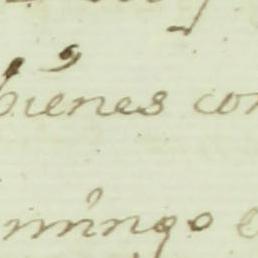 bienes con
mingo